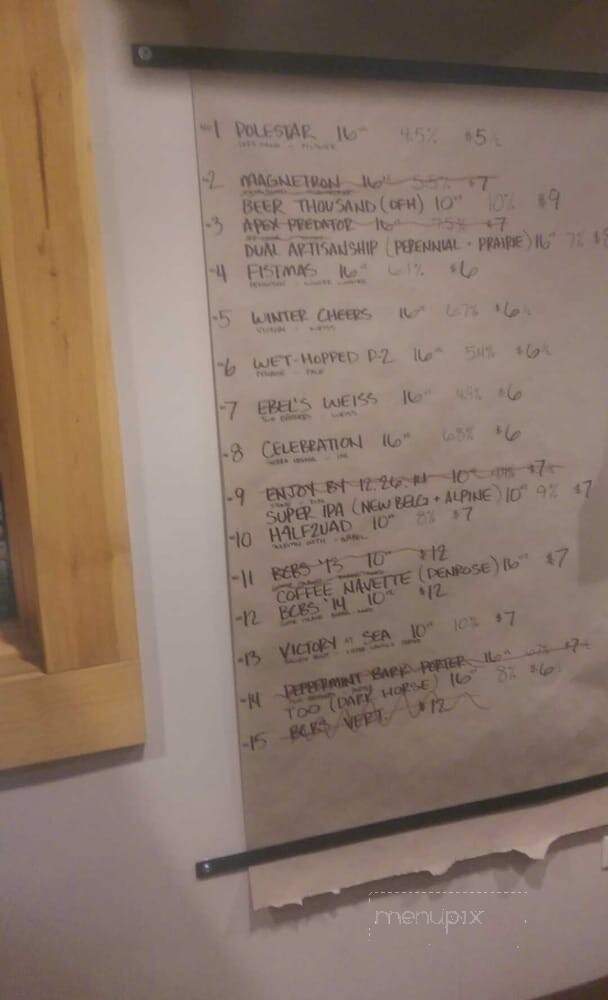 1 POLESTAR 16oz 4.5% $5½
2 MAGNETRON 16oz 5.5% $7
BEER THOUSAND (OFH) 10oz 10% $9
3 APEX PREDATOR 16oz 7.5% $7
DUAL ARTISANSHIP (PERENNIAL + PRAIRIE) 16oz 7%
4 FISTMAS 16oz 6.1% $6
5 WINTER CHEERS 16oz 6.7% $6½
6 WET-HOPPED P-2 16oz 5.4% $6½
7 EBEL'S WEISS 16oz 4.9% $6
8 CELEBRATION 16oz 6.8% $6
9 ENJOY BY 12.26.14 10oz $7½
SUPER IPA (NEW BELG + ALPINE) 10oz 9% $7
10 H4LF2UAD 10oz 8% $7
11 BCBS '13 10oz $12
COFFEE NAVETTE (PENROSE) 16oz $7
12 BCBS '14 10oz $12
13 VICTORY AT SEA 10oz 10% $7
14 PEPPERMINT BARK PORTER 16oz $7½
TOO (DARK HORSE) 16oz 8% $6
15 BCBS VERT. $12
menupix